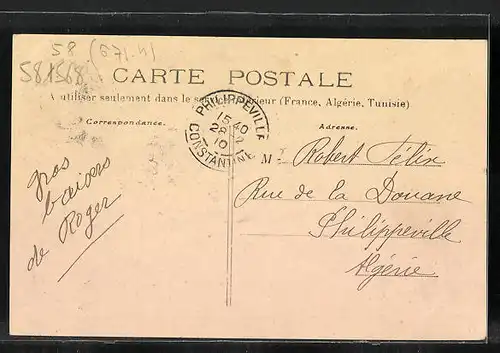 58 (671.4)
581568
CARTE POSTALE
A utiliser seulement dans le service intérieur (France, Algérie, Tunisie)
Correspondance. Adresse.
PHILIPPEVILLE
15 40
28
10
CONSTANTINE
gros
baisers
de Roger
M. Robert Félix
Rue de la Douane
Philippeville
Algérie